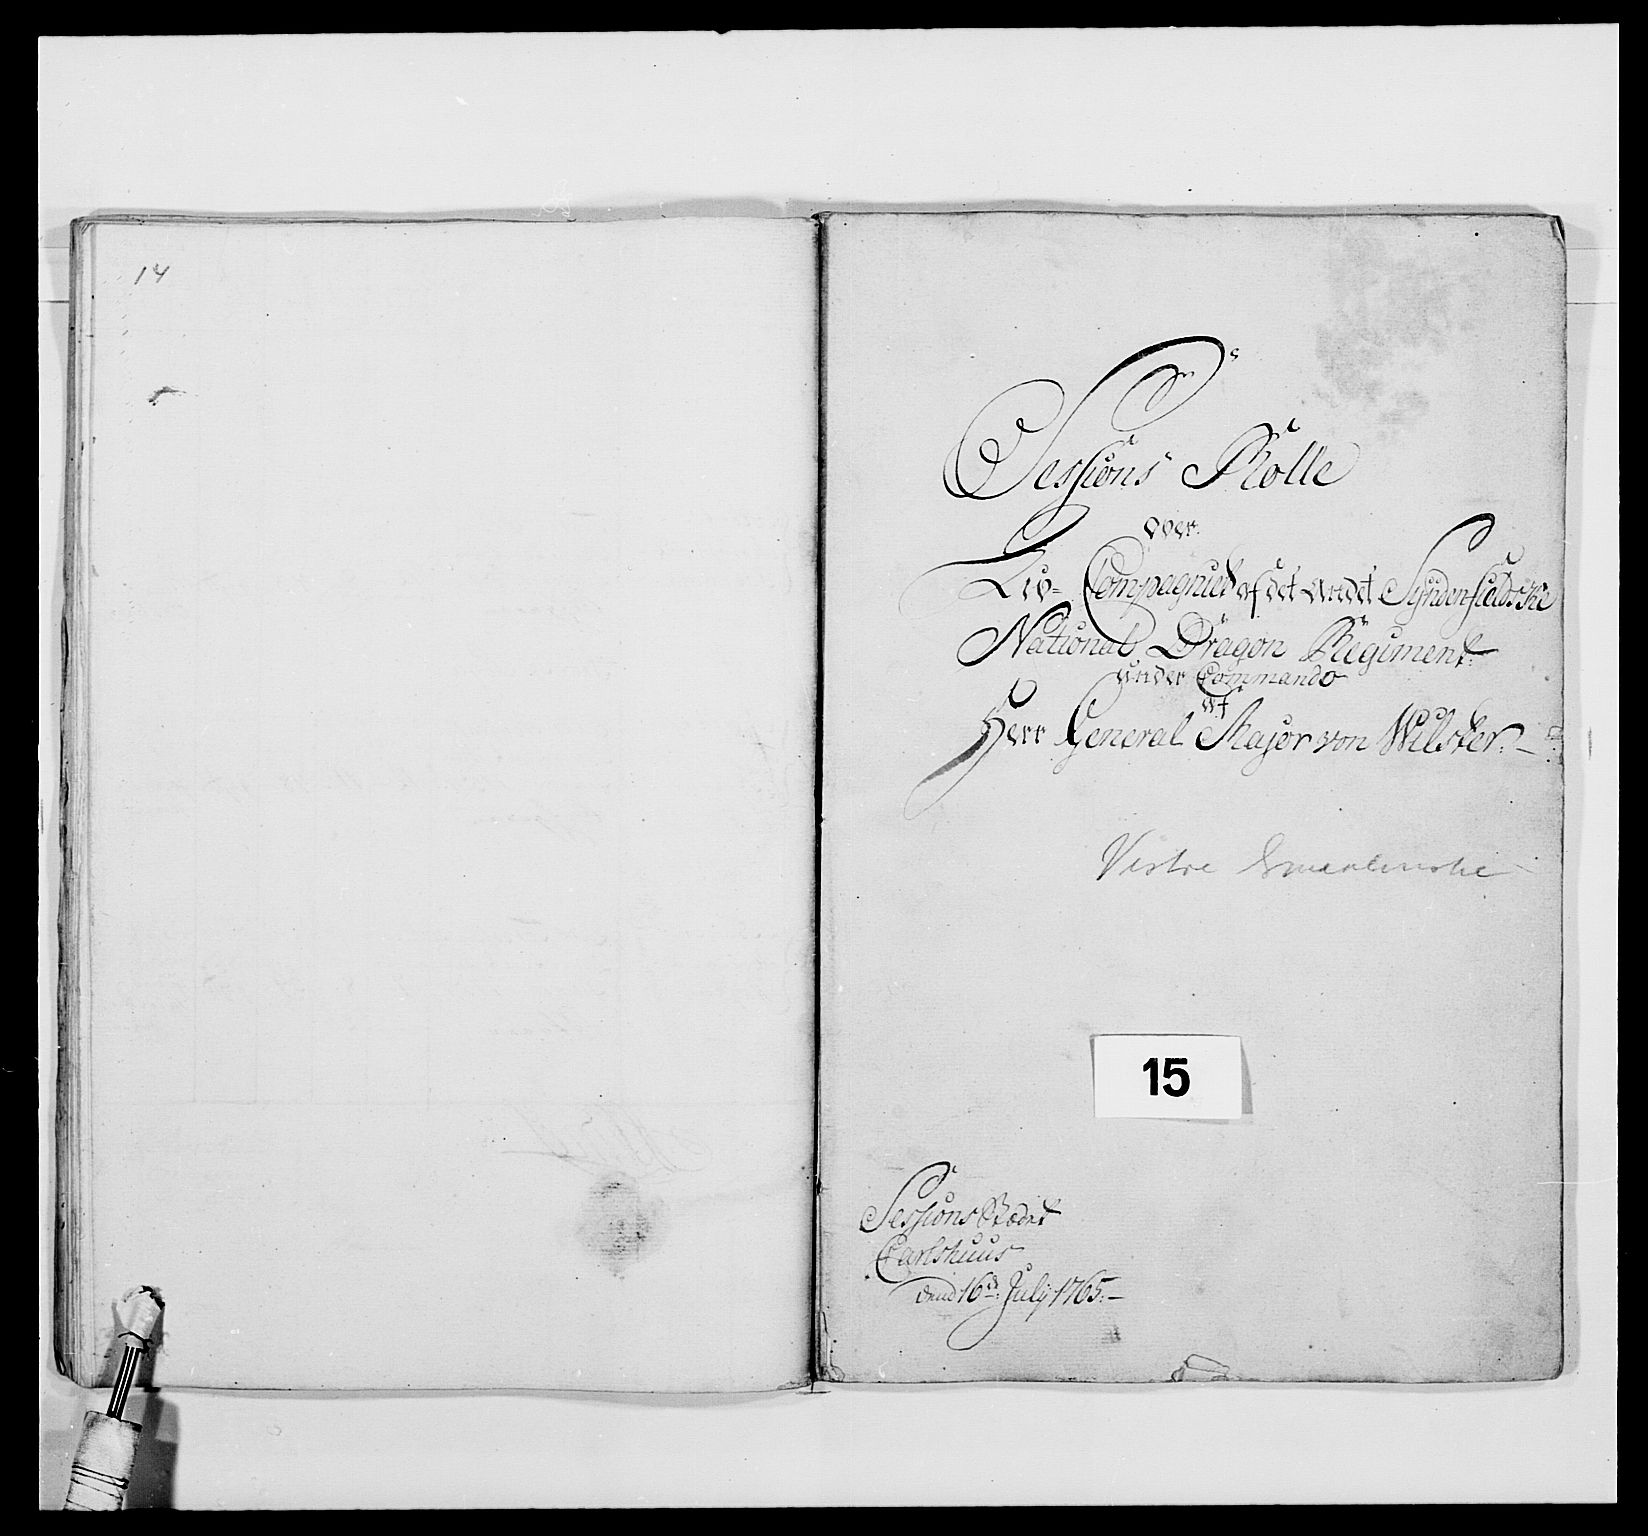 14
Sessions Rolle
over
Liv= Compagniet af det andet Syndenfieldske
National Dragon Regiment.
under Commando
af
Herr General Major von Wilster.
Vestre Smaalenske
15
Sessions Stædet
Carlshuus
dend 16de July 1765.